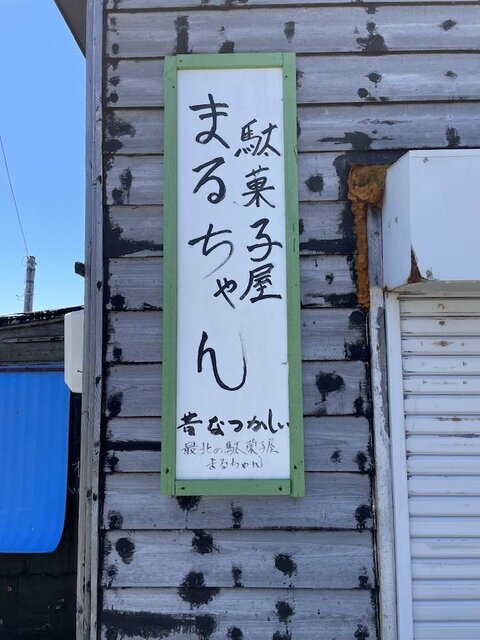 駄菓子屋
まるちゃん
昔なつかしい
最北の駄菓子屋
まるちゃん